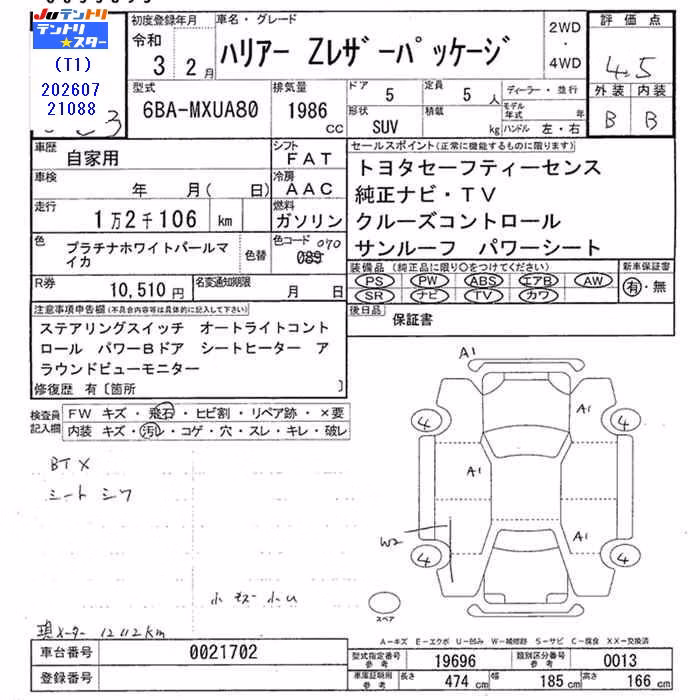 Juテントリ
テントリ★スター
(T1)
202607
21088
初度登録年月
令和
3 2月
車名・グレード
ハリアー Zレザーパッケージ
2WD
・
4WD
評価点
4.5
外装 内装
B B
型式
6BA-MXUA80
排気量
1986
cc
ドア
5
定員
5 人
形状
SUV
積載
kg
ディーラー・並行
モデル年式 年
ハンドル 左・右
車歴
自家用
シフト
FAT
車検
年 月( 日)
冷房
AAC
走行
1万2千106 km
燃料
ガソリン
色
プラチナホワイトパールマイカ
色替
色コード 070
089
R券
10,510円
名変通知期限
月 日
セールスポイント(正常に機能するものに限ります)
トヨタセーフティーセンス
純正ナビ・TV
クルーズコントロール
サンルーフ パワーシート
装備品(純正品に限り○をつけてください)
PS PW ABS エアB AW
SR ナビ TV カワ
新車保証書
有・無
後日品
保証書
注意事項申告欄(不具合内容等は具体的に記入して下さい)
ステアリングスイッチ オートライトコント
ロール パワーBドア シートヒーター ア
ラウンドビューモニター
修復歴 有〔箇所 〕
検査員記入欄
FW キズ・飛石・ヒビ割・リペア跡・×要
内装 キズ・汚レ・コゲ・穴・スレ・キレ・破レ
BT×
シート シワ
小キズ 小U
現メーター 12112km
A1
A1
A1
A1
W2
4
4
4
4
スペア
A-キズ E-エクボ U-凹み W-補修跡 S-サビ C-腐食 XX-交換済
車台番号
0021702
登録番号
型式指定番号
参考
19696
類別区分番号
参考
0013
車庫証明用
参考
長さ
474 cm
幅
185 cm
高さ
166 cm